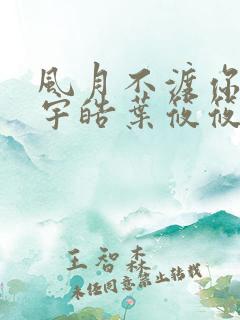 風月不渡你
宇皓葉筱筱
王智森
未经同意禁止转载